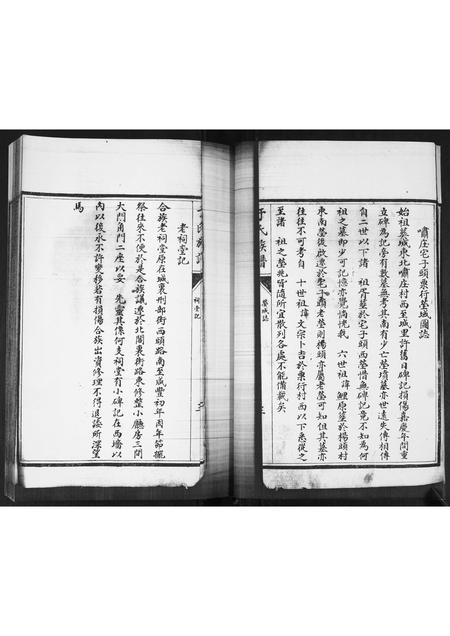 嘯庄宅子頭栗行塋域圖誌
始祖墓城東北嘯庄村西至城里許舊日碑記損傷嘉慶年間重
立碑為記旁有數墓無考其南有少亡塋墳墓亦世遠失傳相傳
自二世以下諸 祖胥葬於宅子頭西塋惜無碑記竟不知為何
祖之墓即少可記憶亦覺恍惚 六世祖諱鯉原葬於楊頭村
東南塋後啟遷於宅子頭老塋則楊頭亦屬老塋可知但其墓亦
往往不可考自 十世祖諱文宗卜吉於栗行村西以下悉從之
至諸 祖之塋兆皆隨所宜散列各處不能備載矣
氏族譜
塋域誌
老祠堂記
合族老祠堂原在城裏刑部街西頭路南至咸豐初年因年節擺
祭往來不便於是合族議遷於北閣裏街路東修整小廳房三間
大門角門二座以妥 先靈其係何支祠堂有小碑記在西墻以
內以後永不許變移若有損傷合族出資修理不得退諉所深望
焉
祠堂記